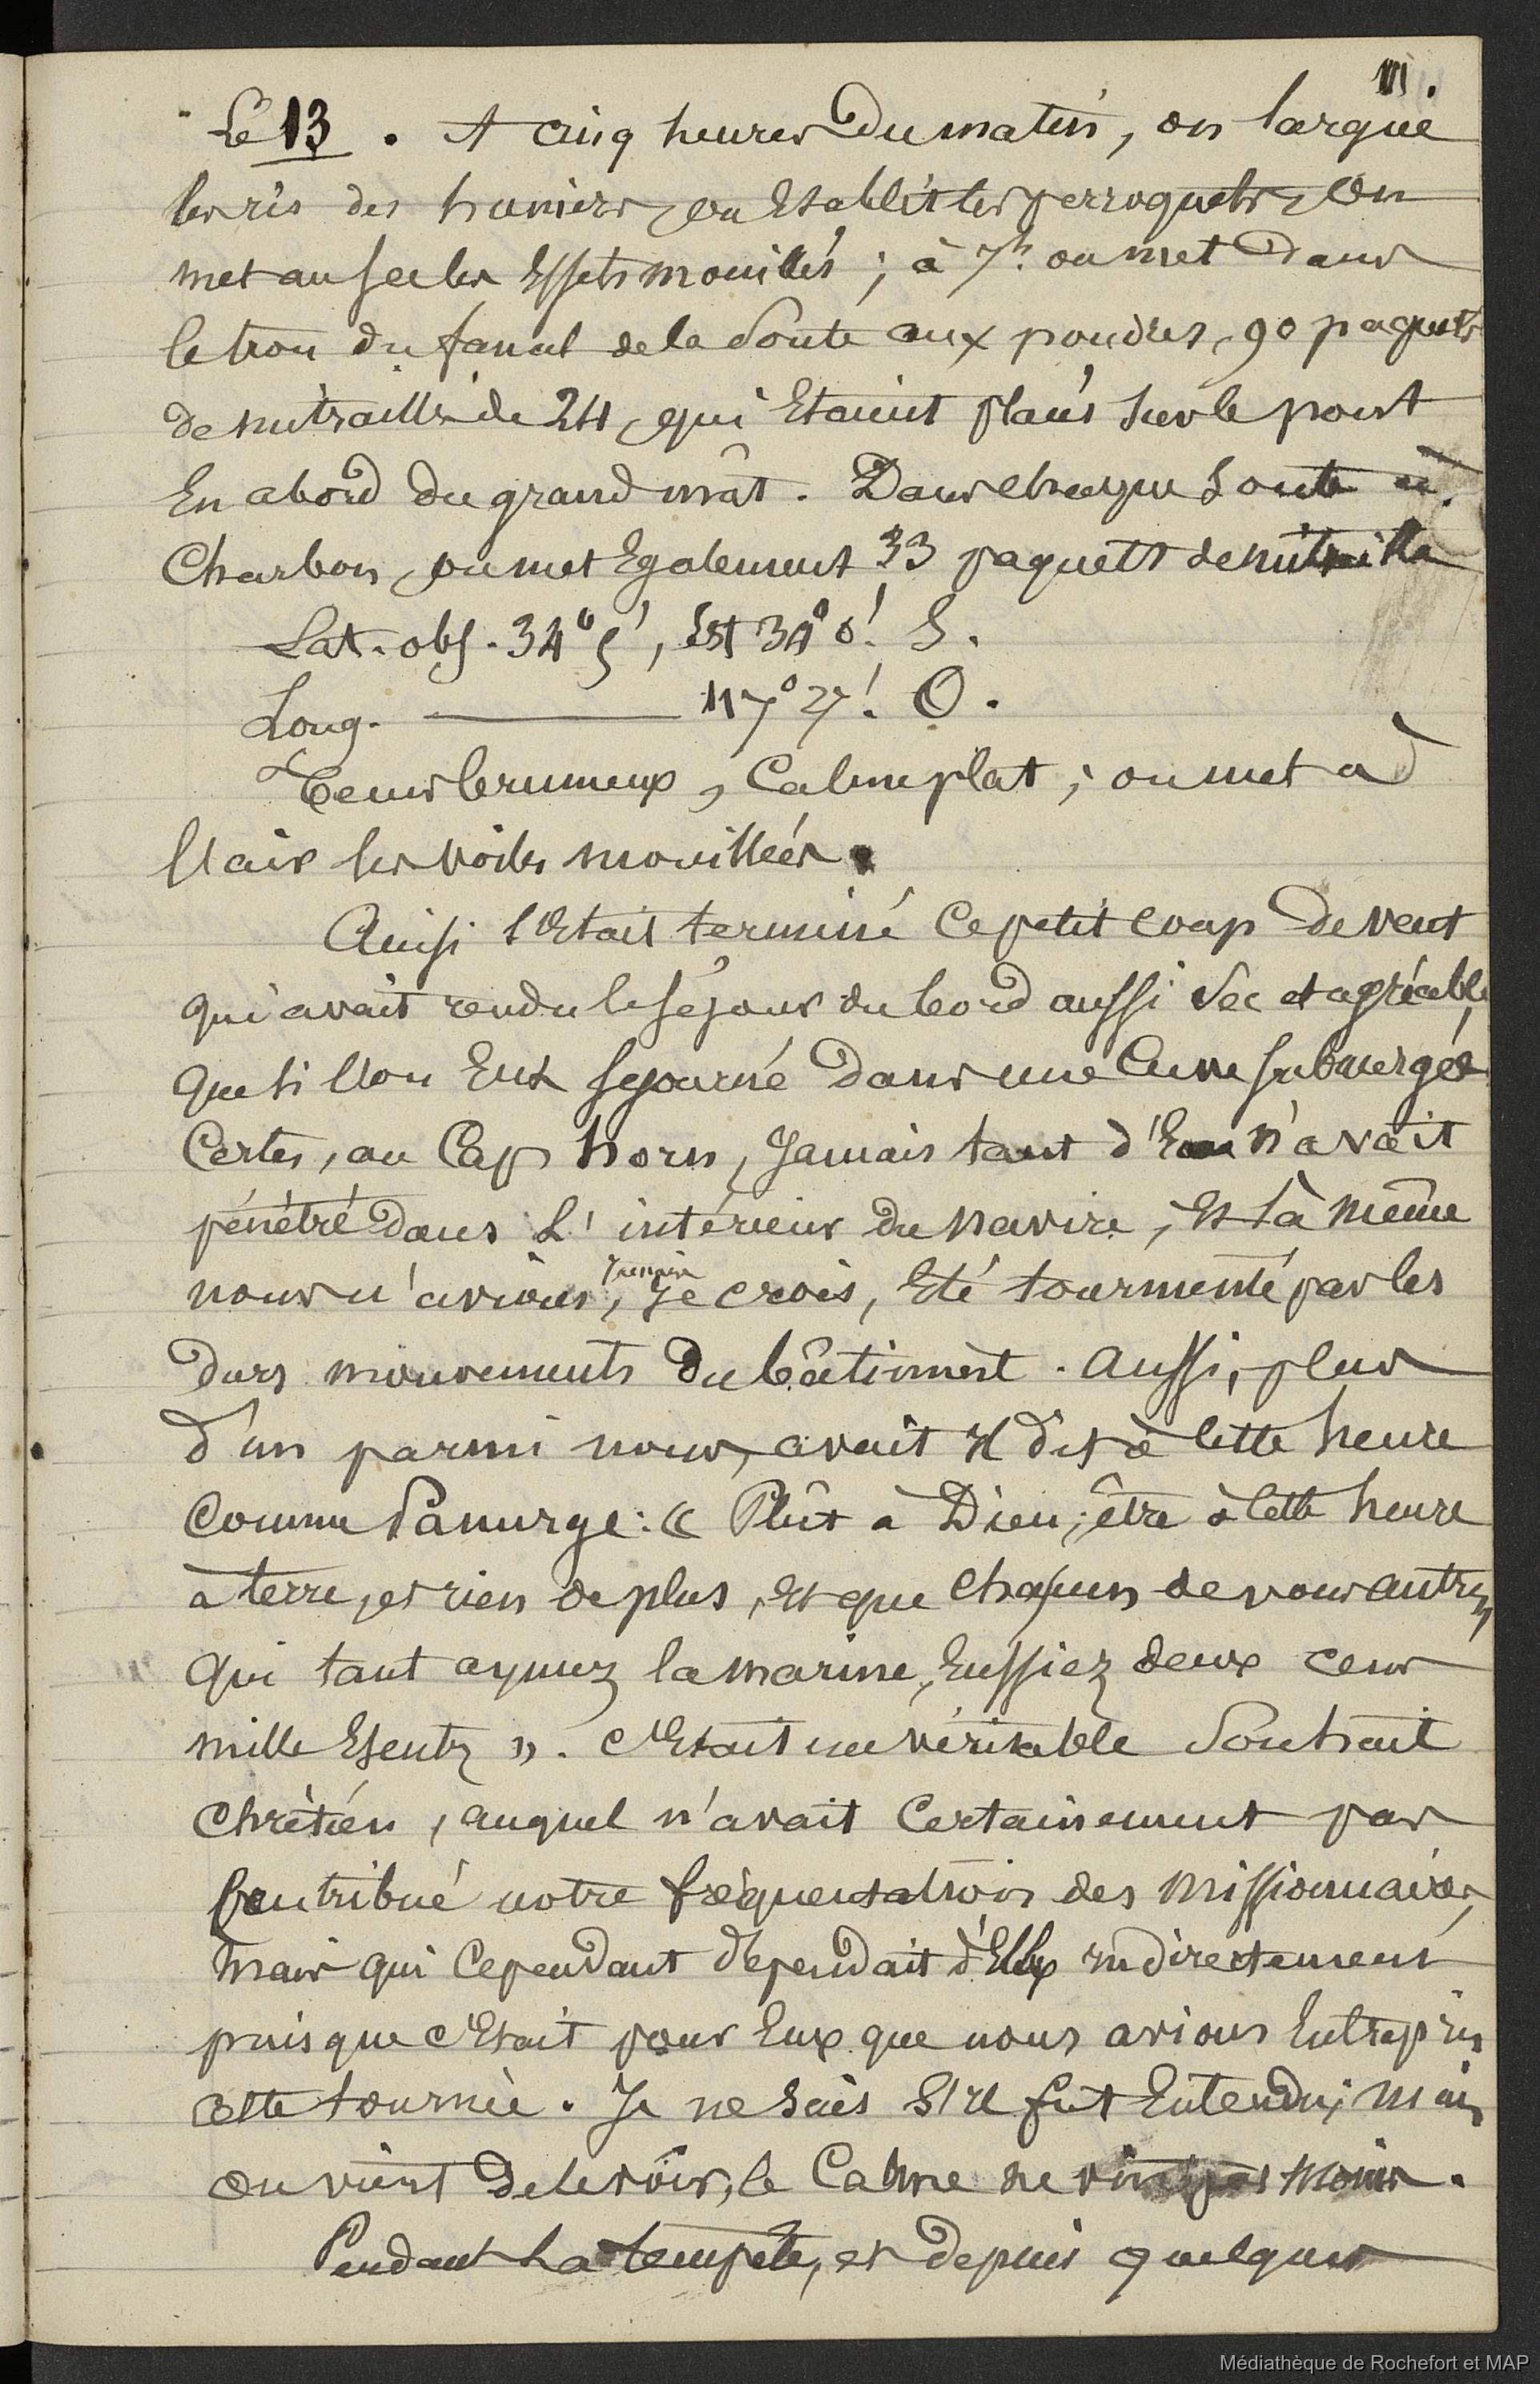 111.
Le 13. A cinq heures du matin, on largue
les ris des huniers, on Etablit les perroquets, On
met au sec les Effets mouillés ; à 7h. on met dans
le trou du fanal de la Soute aux poudres, 90 paquets
de mitraille de 24, qui Etaient placés sur le pont
En abord du grand mât. Dans chaque Soute à
Charbon, on met Egalement 33 paquets de mitraille
Lat. obs. 34° 5', Est 34° 0'. S.
Long. ——— 117° 27'. O.
Tems brumeux, Calme plat ; on met à
l'air les voiles mouillées.
Ainsi s'Etait terminé ce petit coup de vent
qui avait rendu le séjour du bord aussi sec et agréable
que si l'on Eut séjourné dans une Cuve submergée
Certes, au Cap horn, Jamais tant d'Eau n'avait
pénétré dans L'intérieur du navire, Et là même
nous n'avions, Je crois, Eté tourmenté par les
durs mouvements du bâtiment. Aussi, plus
d'un parmi nous, avait il dit à cette heure
comme Panurge : « Plût à Dieu, être à cette heure
à terre, et rien de plus, Et que chascun de vous autres,
qui tant aymez la marine, Eussiez deux cens
mille Escutz ». C'Etait un véritable Souhait
chrétien, auquel n'avait Certainement pas
Contribué notre fréquentation des missionnaires,
mais qui Cependant dépendait d'Eux indirectement
puisque c'Etait pour Eux que nous avions Entrepris
cette tournée. Je ne sais s'il fut Entendu ; mais
on vient de le voir, le Calme ne vint pas moins.
Pendant La tempête, et depuis quelques
Médiathèque de Rochefort et MAP